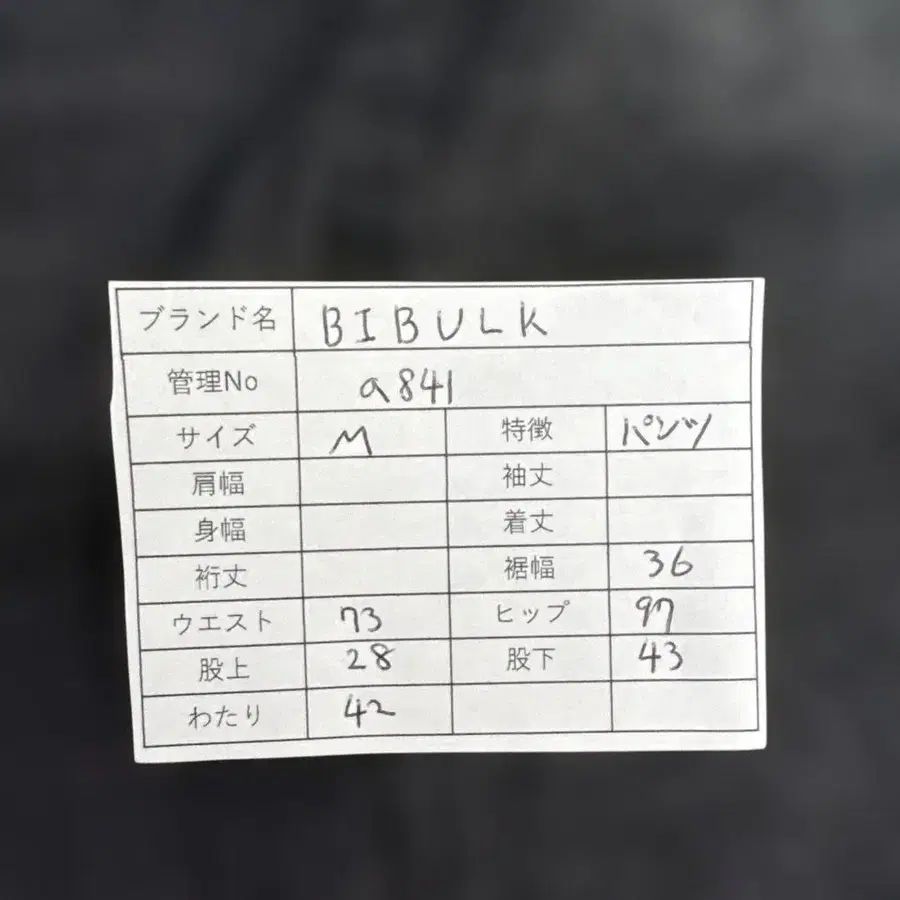 ブランド名 BIBULK
管理No a841
サイズ M 特徴 パンツ
肩幅 袖丈
身幅 着丈
裄丈 裾幅 36
ウエスト 73 ヒップ 97
股上 28 股下 43
わたり 42